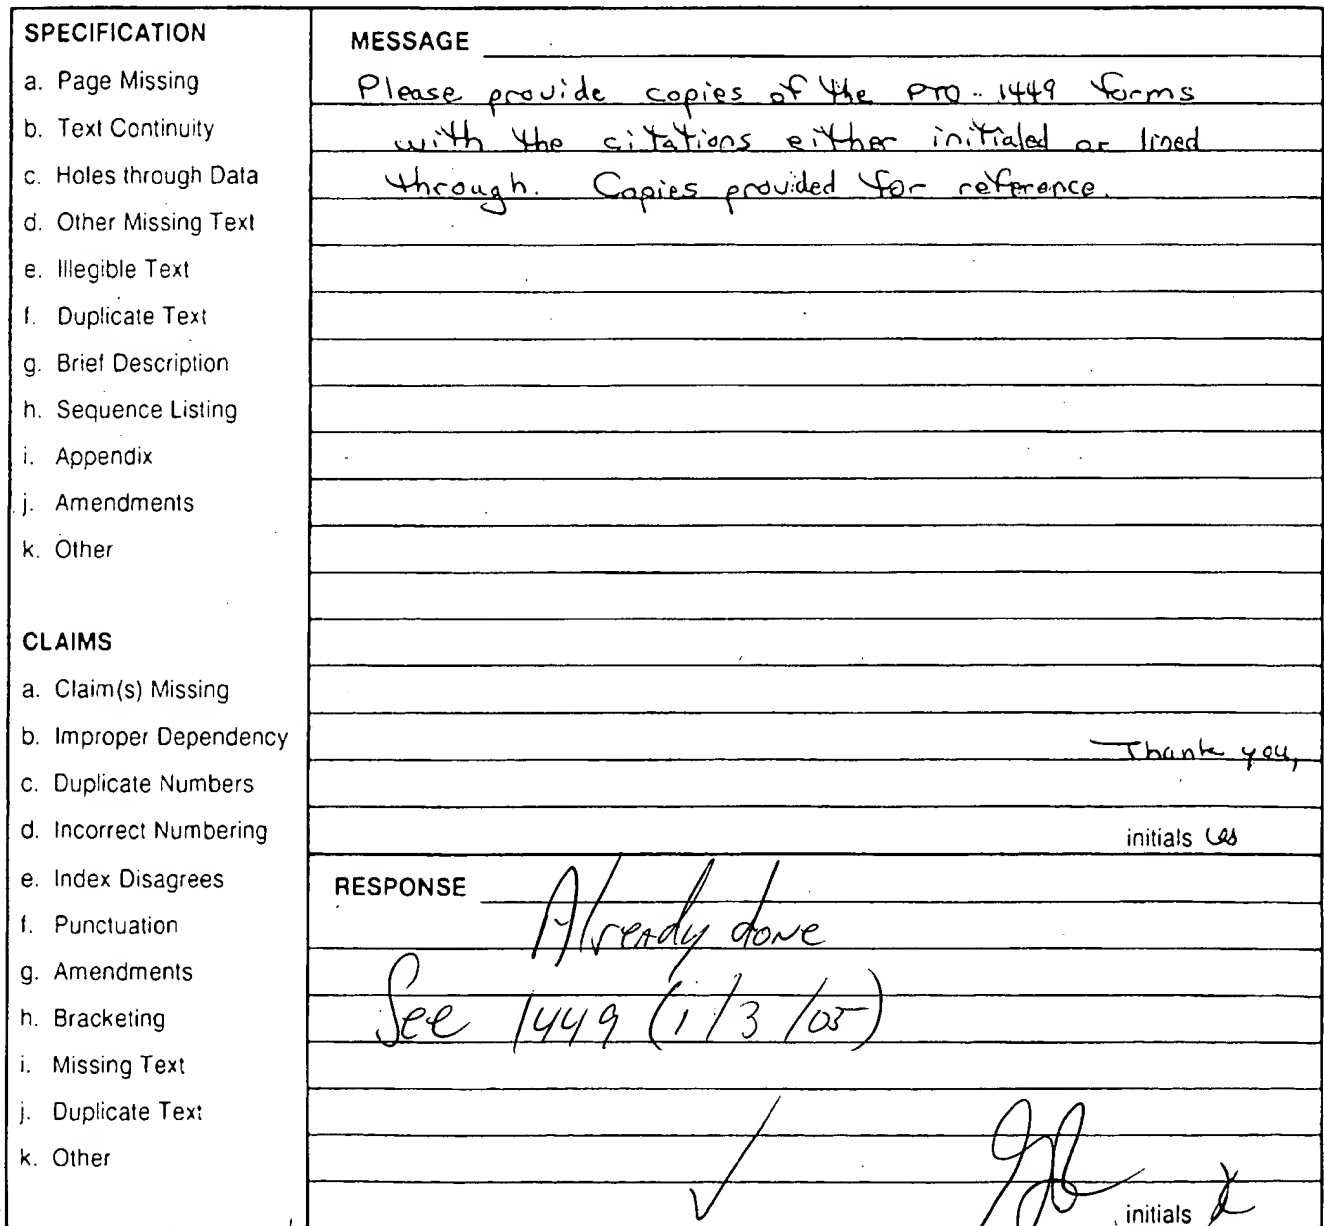 SPECIFICATION
a. Page Missing
b. Text Continuity
c. Holes through Data
d. Other Missing Text
e. Illegible Text
f. Duplicate Text
g. Brief Description
h. Sequence Listing
i. Appendix
j. Amendments
k. Other
CLAIMS
a. Claim(s) Missing
b. Improper Dependency
c. Duplicate Numbers
d. Incorrect Numbering
e. Index Disagrees
f. Punctuation
g. Amendments
h. Bracketing
i. Missing Text
j. Duplicate Text
k. Other
MESSAGE
Please provide copies of the PTO-1449 forms
with the citations either initialed or lined
through. Copies provided for reference.
Thank you,
initials
RESPONSE
Already done
See 1449 (1/3/05)
initials